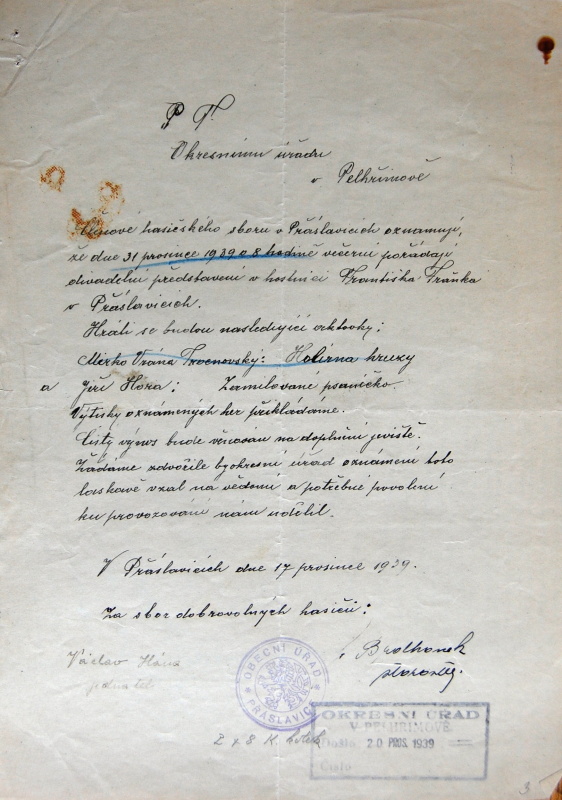 P. T.
Okresnímu úřadu
v Pelhřimově
Členové hasičského sboru v Přáslavicích oznamují,
že dne 31 prosince 1939 o 8 hodině večerní pořádají
divadelní představení v hostinci Františka Fraňka
v Přáslavicích.
Hráti se budou následující aktovky:
Mirko Vrána Trocnovský: Holírna hrůzy
a Jiří Hora: Zamilované psaníčko.
Výtisky oznámených her přikládáme.
Čistý výnos bude věnován na doplnění jeviště.
Žádáme zdvořile by okresní úřad oznámení toto
laskavě vzal na vědomí a potřebné povolení
ku provozování nám udělil.
V Přáslavicích dne 17 prosince 1939.
Za sbor dobrovolných hasičů:
Václav
jednatel
starosta.
OBECNÍ ÚŘAD
PŘÁSLAVICE
2 x 8 K
OKRESNÍ ÚŘAD
V PELHŘIMOVĚ.
Došlo: 20 PROS. 1939
Číslo
3